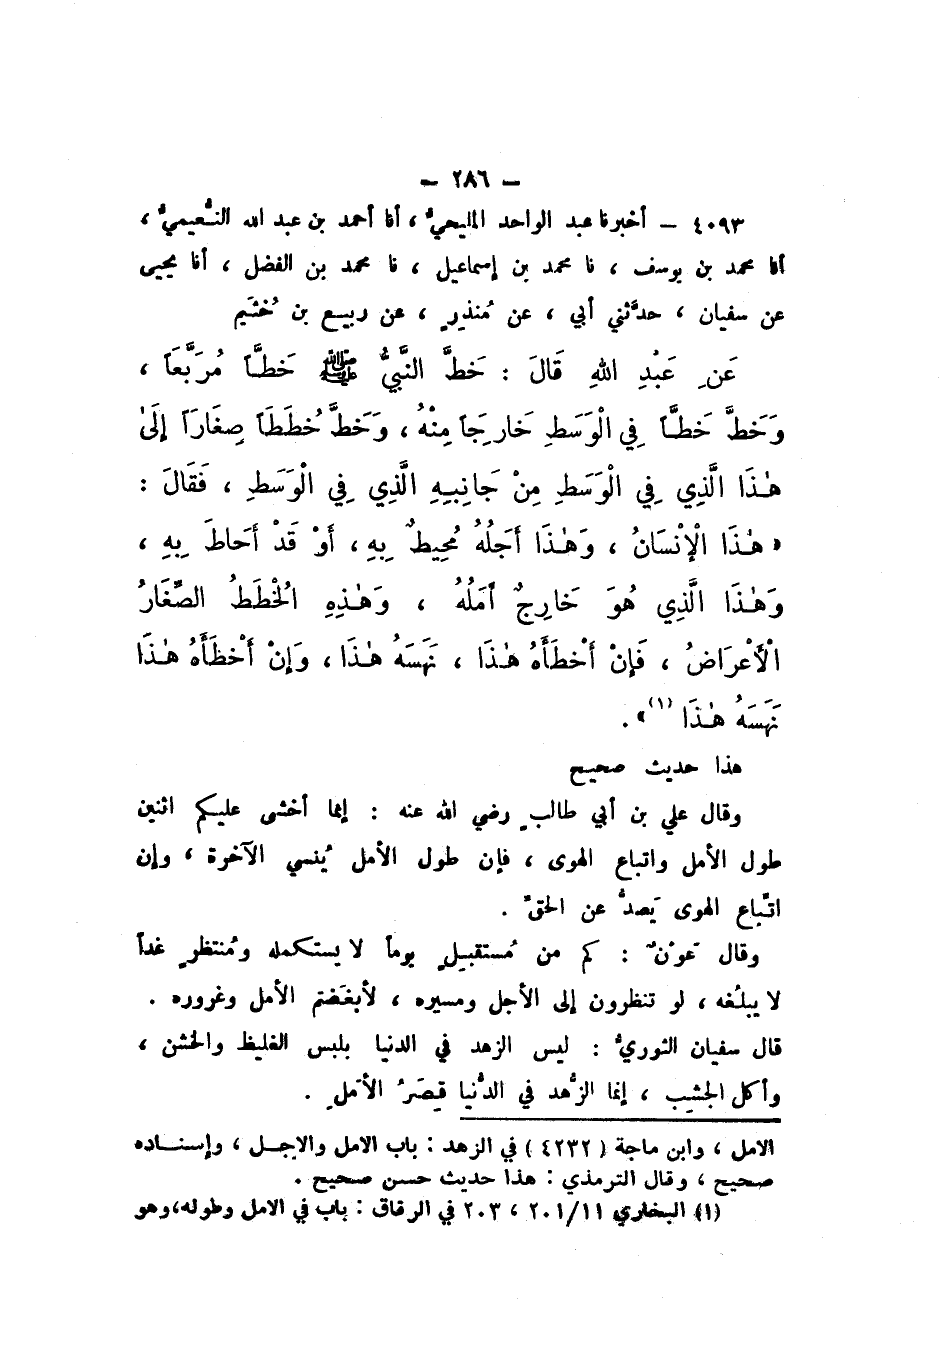 – ٢٨٦ –
٤٠٩٣ – أخبرنا عبد الواحد المليحيُّ ، أنا أحمد بن عبد الله النُّعيميُّ ،
أنا محمد بن يوسف ، نا محمد بن إسماعيل ، نا محمد بن الفضل ، أنا يحيى
عن سفيان ، حدَّثني أبي ، عن مُنذرٍ ، عن ربيع بن خُثَيم
عَنِ عَبْدِ اللهِ قَالَ : خَطَّ النَّبيُّ ﷺ خَطًّا مُرَبَّعَاً ،
وَخَطَّ خَطًّا فِي الْوَسَطِ خَارِجَاً مِنْهُ ، وَخَطَّ خُطَطَاً صِغَارَاً إِلَىٰ
هٰذَا الَّذِي فِي الْوَسَطِ مِنْ جَانِبِهِ الَّذِي فِي الْوَسَطِ ، فَقَالَ :
« هٰذَا الْإِنْسَانُ ، وَهٰذَا أَجَلُهُ مُحِيطٌ بِهِ ، أَوْ قَدْ أَحَاطَ بِهِ ،
وَهٰذَا الَّذِي هُوَ خَارِجٌ أَمَلُهُ ، وَهٰذِهِ الْخُطَطُ الصِّغَارُ
الْأَعْرَاضُ ، فَإِنْ أَخْطَأَهُ هٰذَا ، نَهَسَهُ هٰذَا ، وَإِنْ أَخْطَأَهُ هٰذَا
نَهَسَهُ هٰذَا (١)» .
هذا حديث صحيح
وقال علي بن أبي طالبٍ رضي الله عنه : إنما أخشى عليكم اثنين
طول الأمل واتباع الهوى ، فإن طول الأمل يُنسي الآخرة ، وإن
اتِّباع الهوى يَصدُّ عن الحقِّ .
وقال عَوْنٌ : كم من مُستقبلٍ يوماً لا يستكمله ومُنتظرٍ غداً
لا يبلُغه ، لو تنظرون إلى الأجل ومسيره ، لأبغَضتم الأمل وغروره .
قال سفيان الثوريُّ : ليس الزهد في الدنيا بلبس الغليظ والخشن ،
وأكل الجشِب ، إنما الزُّهد في الدُّنيا قِصَرُ الأمَلِ .
الامل ، وابن ماجة ( ٤٢٣٢ ) في الزهد : باب الامل والاجل ، وإسناده
صحيح ، وقال الترمذي : هذا حديث حسن صحيح .
(١) البخاري ٢٠١/١١ ، ٢٠٣ في الرقاق : باب في الامل وطوله،وهو